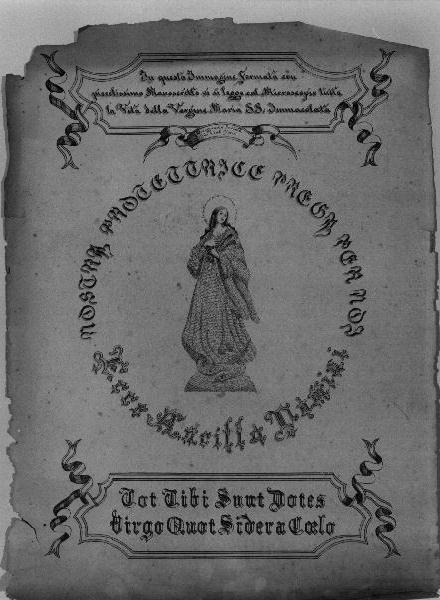 In questa Immagine formata con
piccolissimo Manoscritto si si legge col Microscopio tutta
la Vita della Vergine Maria SS. Immacolata
NOSTRA PROTETTRICE PREGA PER NOI
Ecce Ancilla Domini
Tot Tibi Sunt Dotes
Virgo Quot Sidera Cœlo